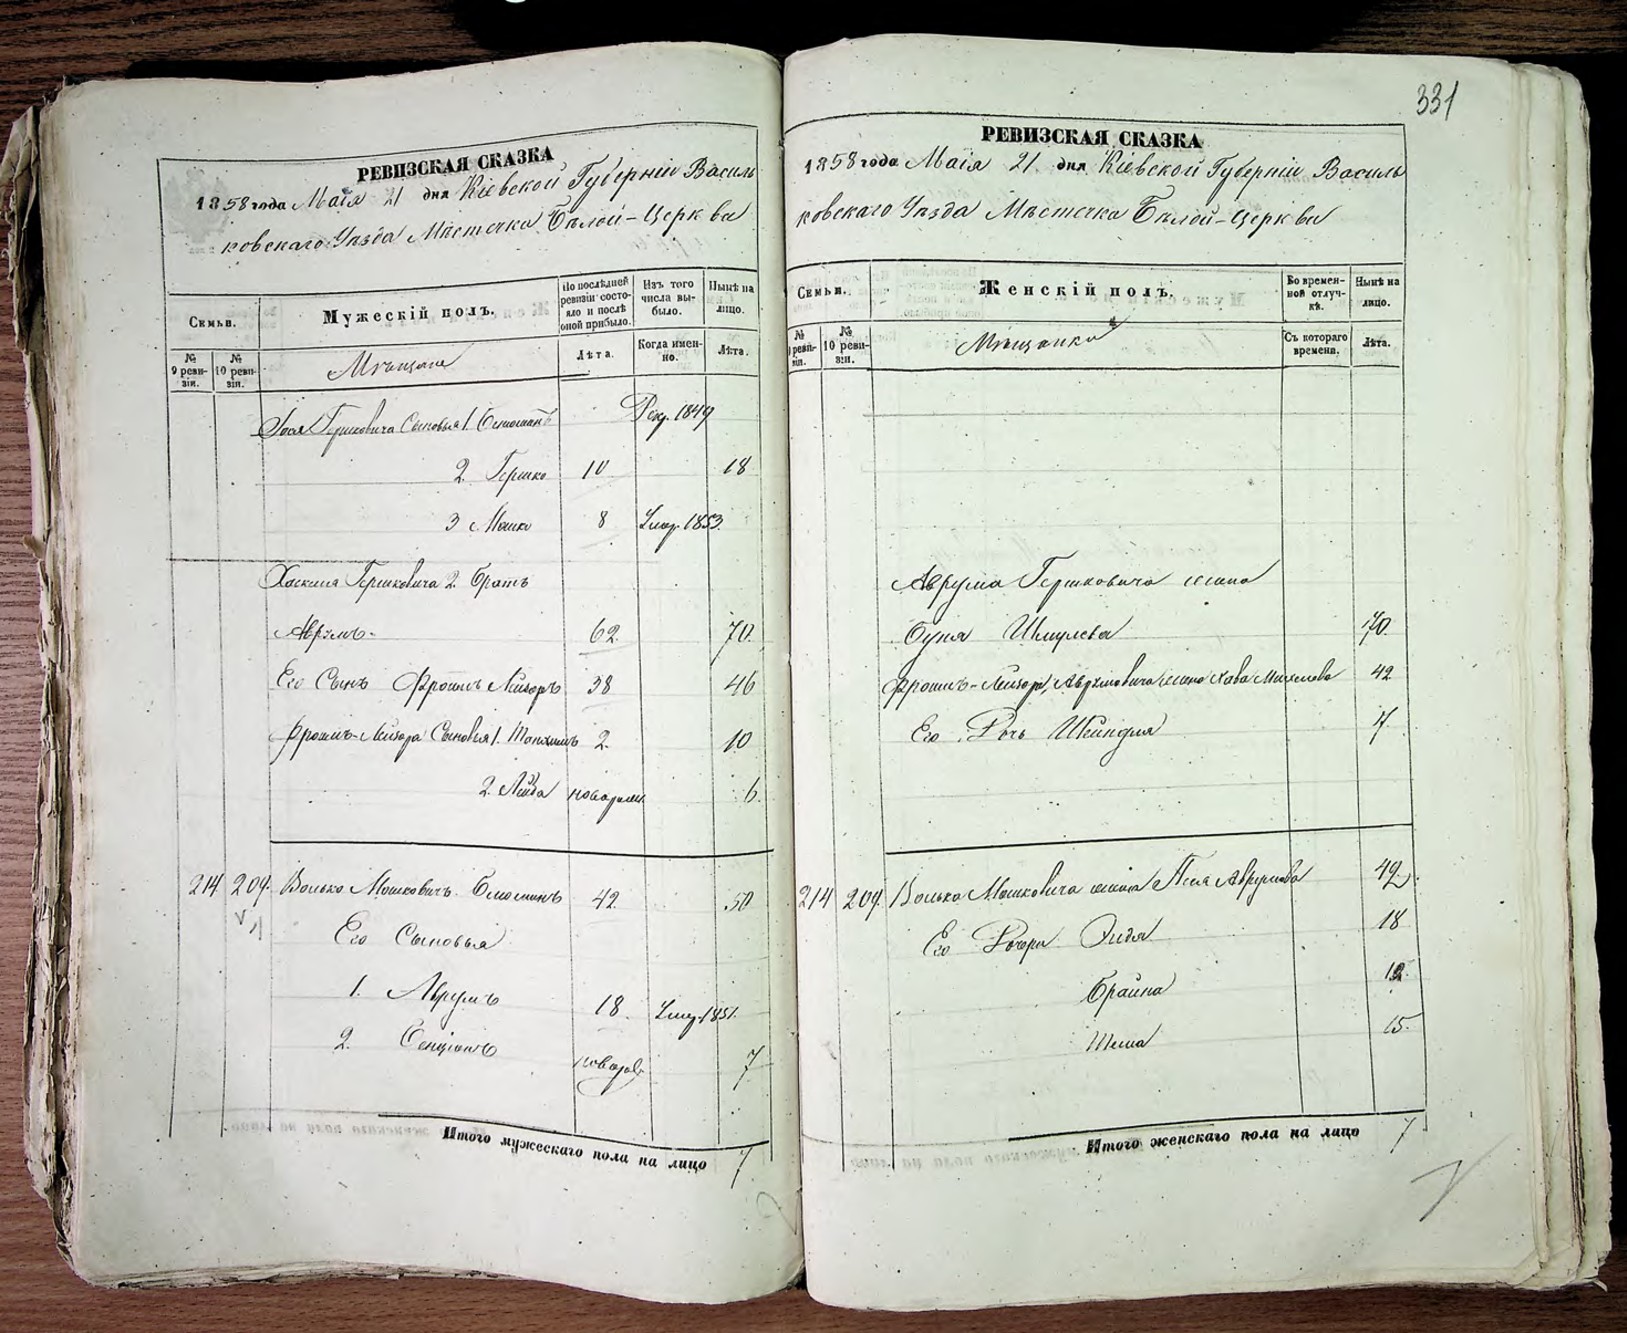 331
РЕВИЗСКАЯ СКАЗКА
1858 года Маія 21 дня Кіевской Губерніи Василь
ковскаго Уѣзда Мѣстечка Бѣлой-Церкви
Семьи.
Мужескій полъ.
По послѣдней ревизіи состояло и послѣ оной прибыло.
Изъ того числа выбыло.
Нынѣ на лицо.
№ 9 ревизіи.
№ 10 ревизіи.
Мѣщане
Лѣта.
Когда именно.
Лѣта.
Гершковича Сыновья 1. Рекр. 1849
2. Гершко 10 18
3 Мошко 8 Умер. 1853.
Хаскеля Гершковича 2. Братъ
Аврумъ 62. 70.
Его Сынъ Фроимъ Лейзоръ 38 46
Фроимъ-Лейзора Сыновья 1. Танхимъ 2. 10
2. Лейба новорожд. 6.
214 209. Волько Мошковичъ 42 50
Его Сыновья
1. Аврумъ 18. Умер. 1851.
2. Бенціонъ новорож 7
Итого мужескаго пола на лицо 7
РЕВИЗСКАЯ СКАЗКА
1858 года Маія 21 дня Кіевской Губерніи Василь
ковскаго Уѣзда Мѣстечка Бѣлой-Церкви
Семьи.
Женскій полъ.
Во временной отлучкѣ.
Нынѣ на лицо.
№ 9 ревизіи.
№ 10 ревизіи.
Мѣщанки
Съ котораго времени.
Лѣта.
Аврума Гершковича жена
Буня Шмулева 70.
Фроимъ-Лейзора Аврумовича жена Хава Михелева 42
Его Дочь Шейндля 7
214 209. Волько Мошковича жена Песя Аврумова 49.
Его Дочери 18
Брайна 12.
15.
Итого женскаго пола на лицо 7